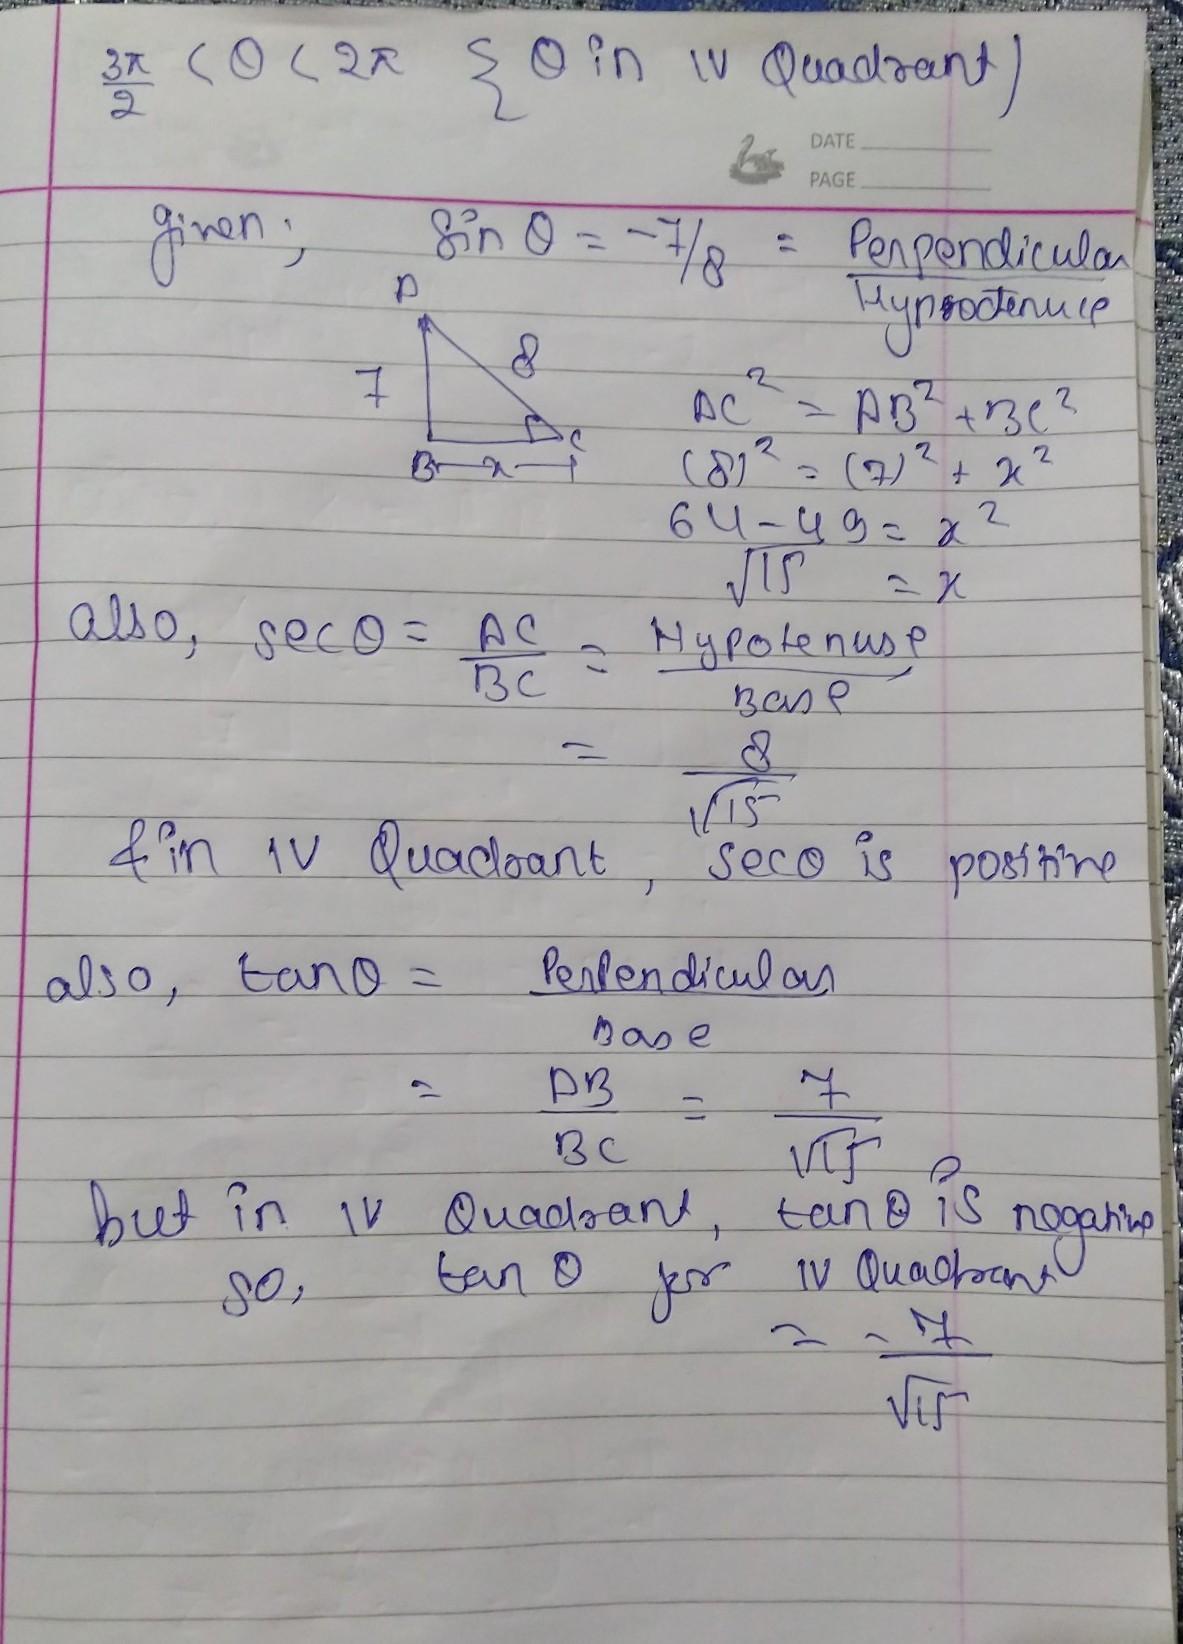 3π/2 < θ < 2π { θ in IV Quadrant)
DATE
PAGE
given; Sin θ = -7/8 = Perpendicular/Hyprotenuse
A
7 8
B x C
AC² = AB² + BC²
(8)² = (7)² + x²
64 - 49 = x²
√15 = x
also, secθ = AC/BC = Hypotenuse/Base
= 8/√15
& in IV Quadrant, secθ is positive
also, tanθ = Perpendicular/Base
= AB/BC = 7/√15
but in IV Quadrant, tanθ is nogative
so, tan θ for IV Quadrant
= - 7/√15